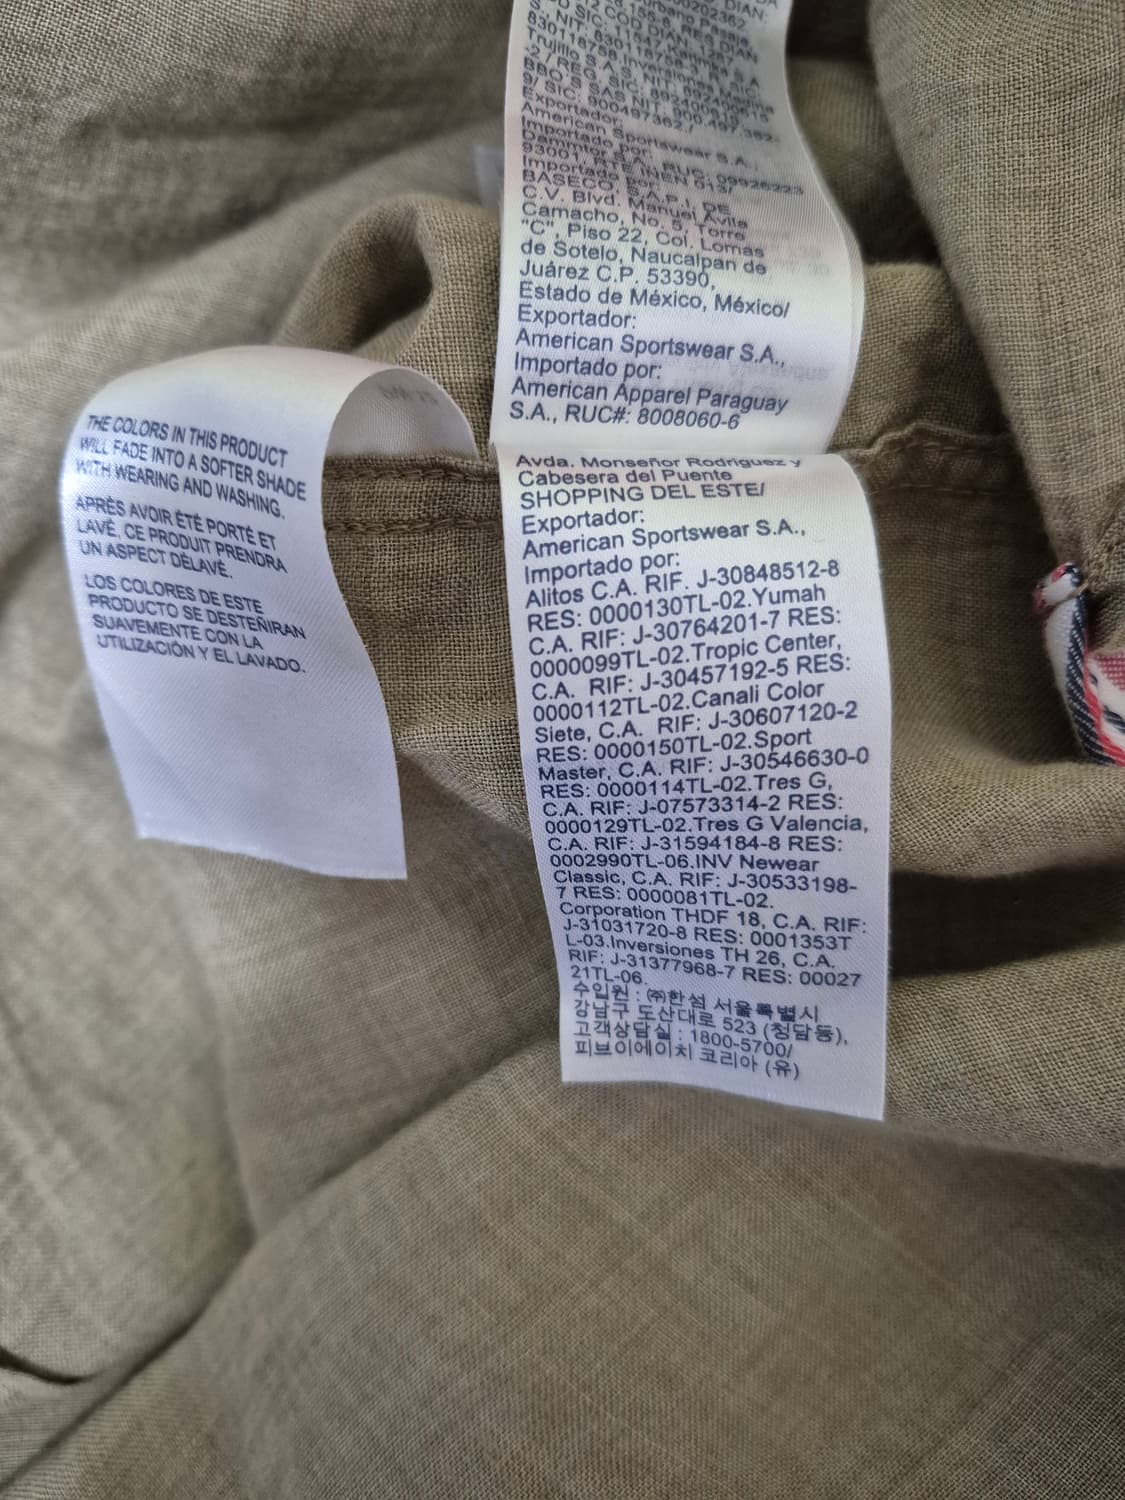 THE COLORS IN THIS PRODUCT
WILL FADE INTO A SOFTER SHADE
WITH WEARING AND WASHING.
APRÈS AVOIR ÉTÉ PORTÉ ET
LAVÉ, CE PRODUIT PRENDRA
UN ASPECT DÉLAVÉ.
LOS COLORES DE ESTE
PRODUCTO SE DESTEÑIRAN
SUAVEMENTE CON LA
UTILIZACIÓN Y EL LAVADO.
Exportador:
American Sportswear S.A.,
Importado por:
BASECO, S.A.P.I. DE
C.V. Blvd. Manuel Ávila
Camacho, No. 5, Torre
"C", Piso 22, Col. Lomas
de Sotelo, Naucalpan de
Juárez C.P. 53390,
Estado de México, México/
Exportador:
American Sportswear S.A.,
Importado por:
American Apparel Paraguay
S.A., RUC#: 8008060-6
Avda. Monseñor Rodriguez y
Cabesera del Puente
SHOPPING DEL ESTE/
Exportador:
American Sportswear S.A.,
Importado por:
Alitos C.A. RIF. J-30848512-8
RES: 0000130TL-02.Yumah
C.A. RIF: J-30764201-7 RES:
0000099TL-02.Tropic Center,
C.A. RIF: J-30457192-5 RES:
0000112TL-02.Canali Color
Siete, C.A. RIF: J-30607120-2
RES: 0000150TL-02.Sport
Master, C.A. RIF: J-30546630-0
RES: 0000114TL-02.Tres G,
C.A. RIF: J-07573314-2 RES:
0000129TL-02.Tres G Valencia,
C.A. RIF: J-31594184-8 RES:
0002990TL-06.INV Newear
Classic, C.A. RIF: J-30533198-
7 RES: 0000081TL-02.
Corporation THDF 18, C.A. RIF:
J-31031720-8 RES: 0001353T
L-03.Inversiones TH 26, C.A.
RIF: J-31377968-7 RES: 00027
21TL-06.
수입원 : ㈜한섬 서울특별시
강남구 도산대로 523 (청담동),
고객상담실 : 1800-5700/
피브이에이치 코리아 (유)